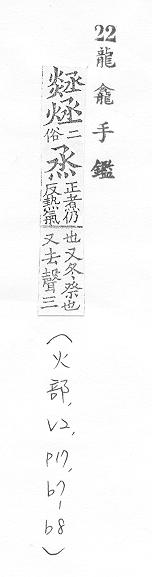 22龍龕手鑑
二俗
烝
正煮仍
反熱氣
也又冬祭也
又去聲三
(火部, V2, p17, b7-b8)